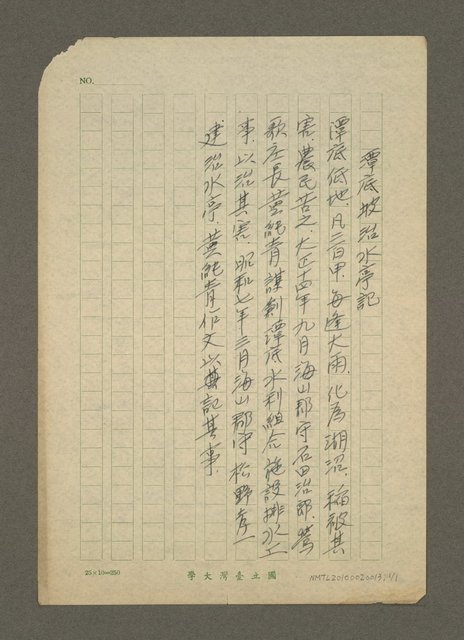 NO.
潭底坡治水亭記
潭底低地、凡三百甲、每逢大雨、化為湖沼、稻被其
害、農民苦之、大正十四年九月海山郡守石田治郎、鶯
歌庄長黃純青謀創潭底水利組合施設排水工
事、以治其害、昭和七年三月海山郡守松野孝一
建治水亭、黃純青作文以記其事、
25×10=250
學大灣臺立國
NMTL20100020013, 1/1